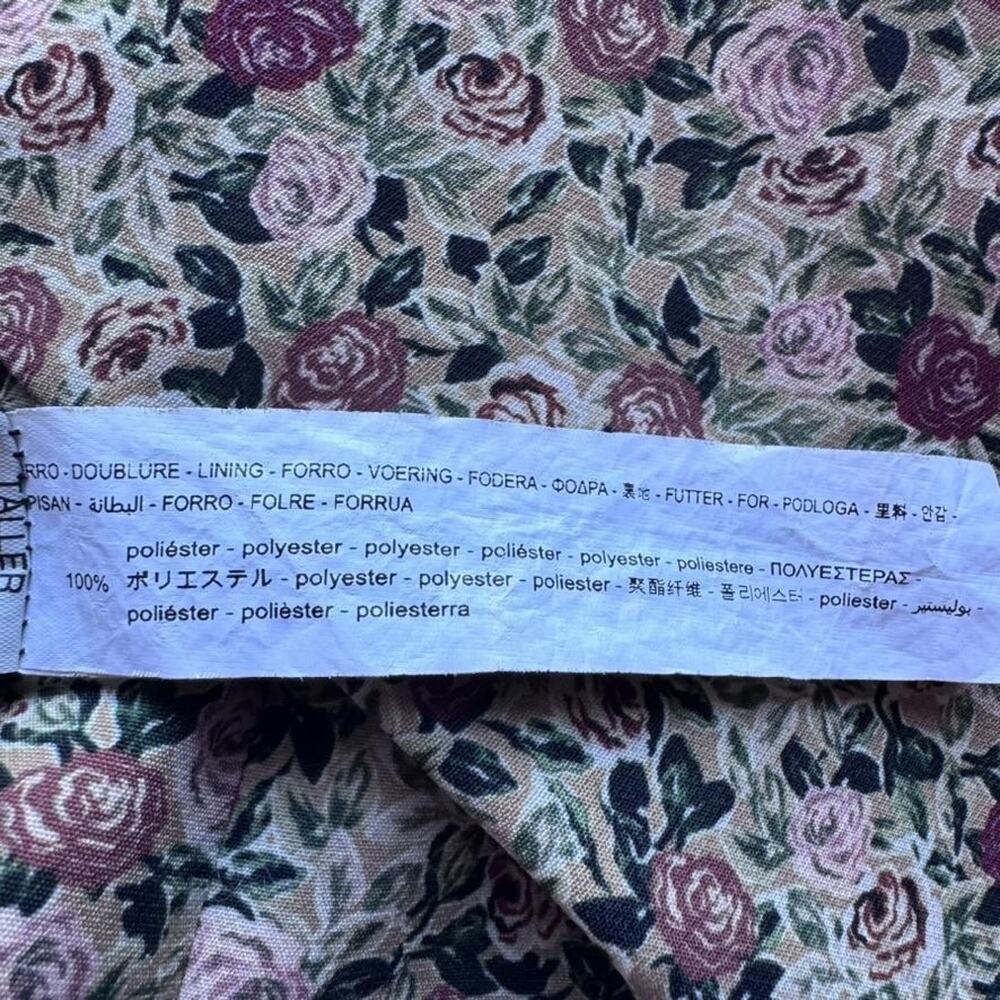 RRO - DOUBLURE - LINING - FORRO - VOERING - FODERA - ΦΟΔΡΑ - 裏地 - FUTTER - FOR - PODLOGA - 里料 - 안감 -
PISAN - البطانة - FORRO - FOLRE - FORRUA
poliéster - polyester - polyester - poliéster - polyester - poliestere - ΠΟΛΥΕΣΤΕΡΑΣ -
100% ポリエステル - polyester - polyester - poliester - 聚酯纤维 - 폴리에스터 - poliester - بوليستير -
poliéster - polièster - poliesterra
TAILER